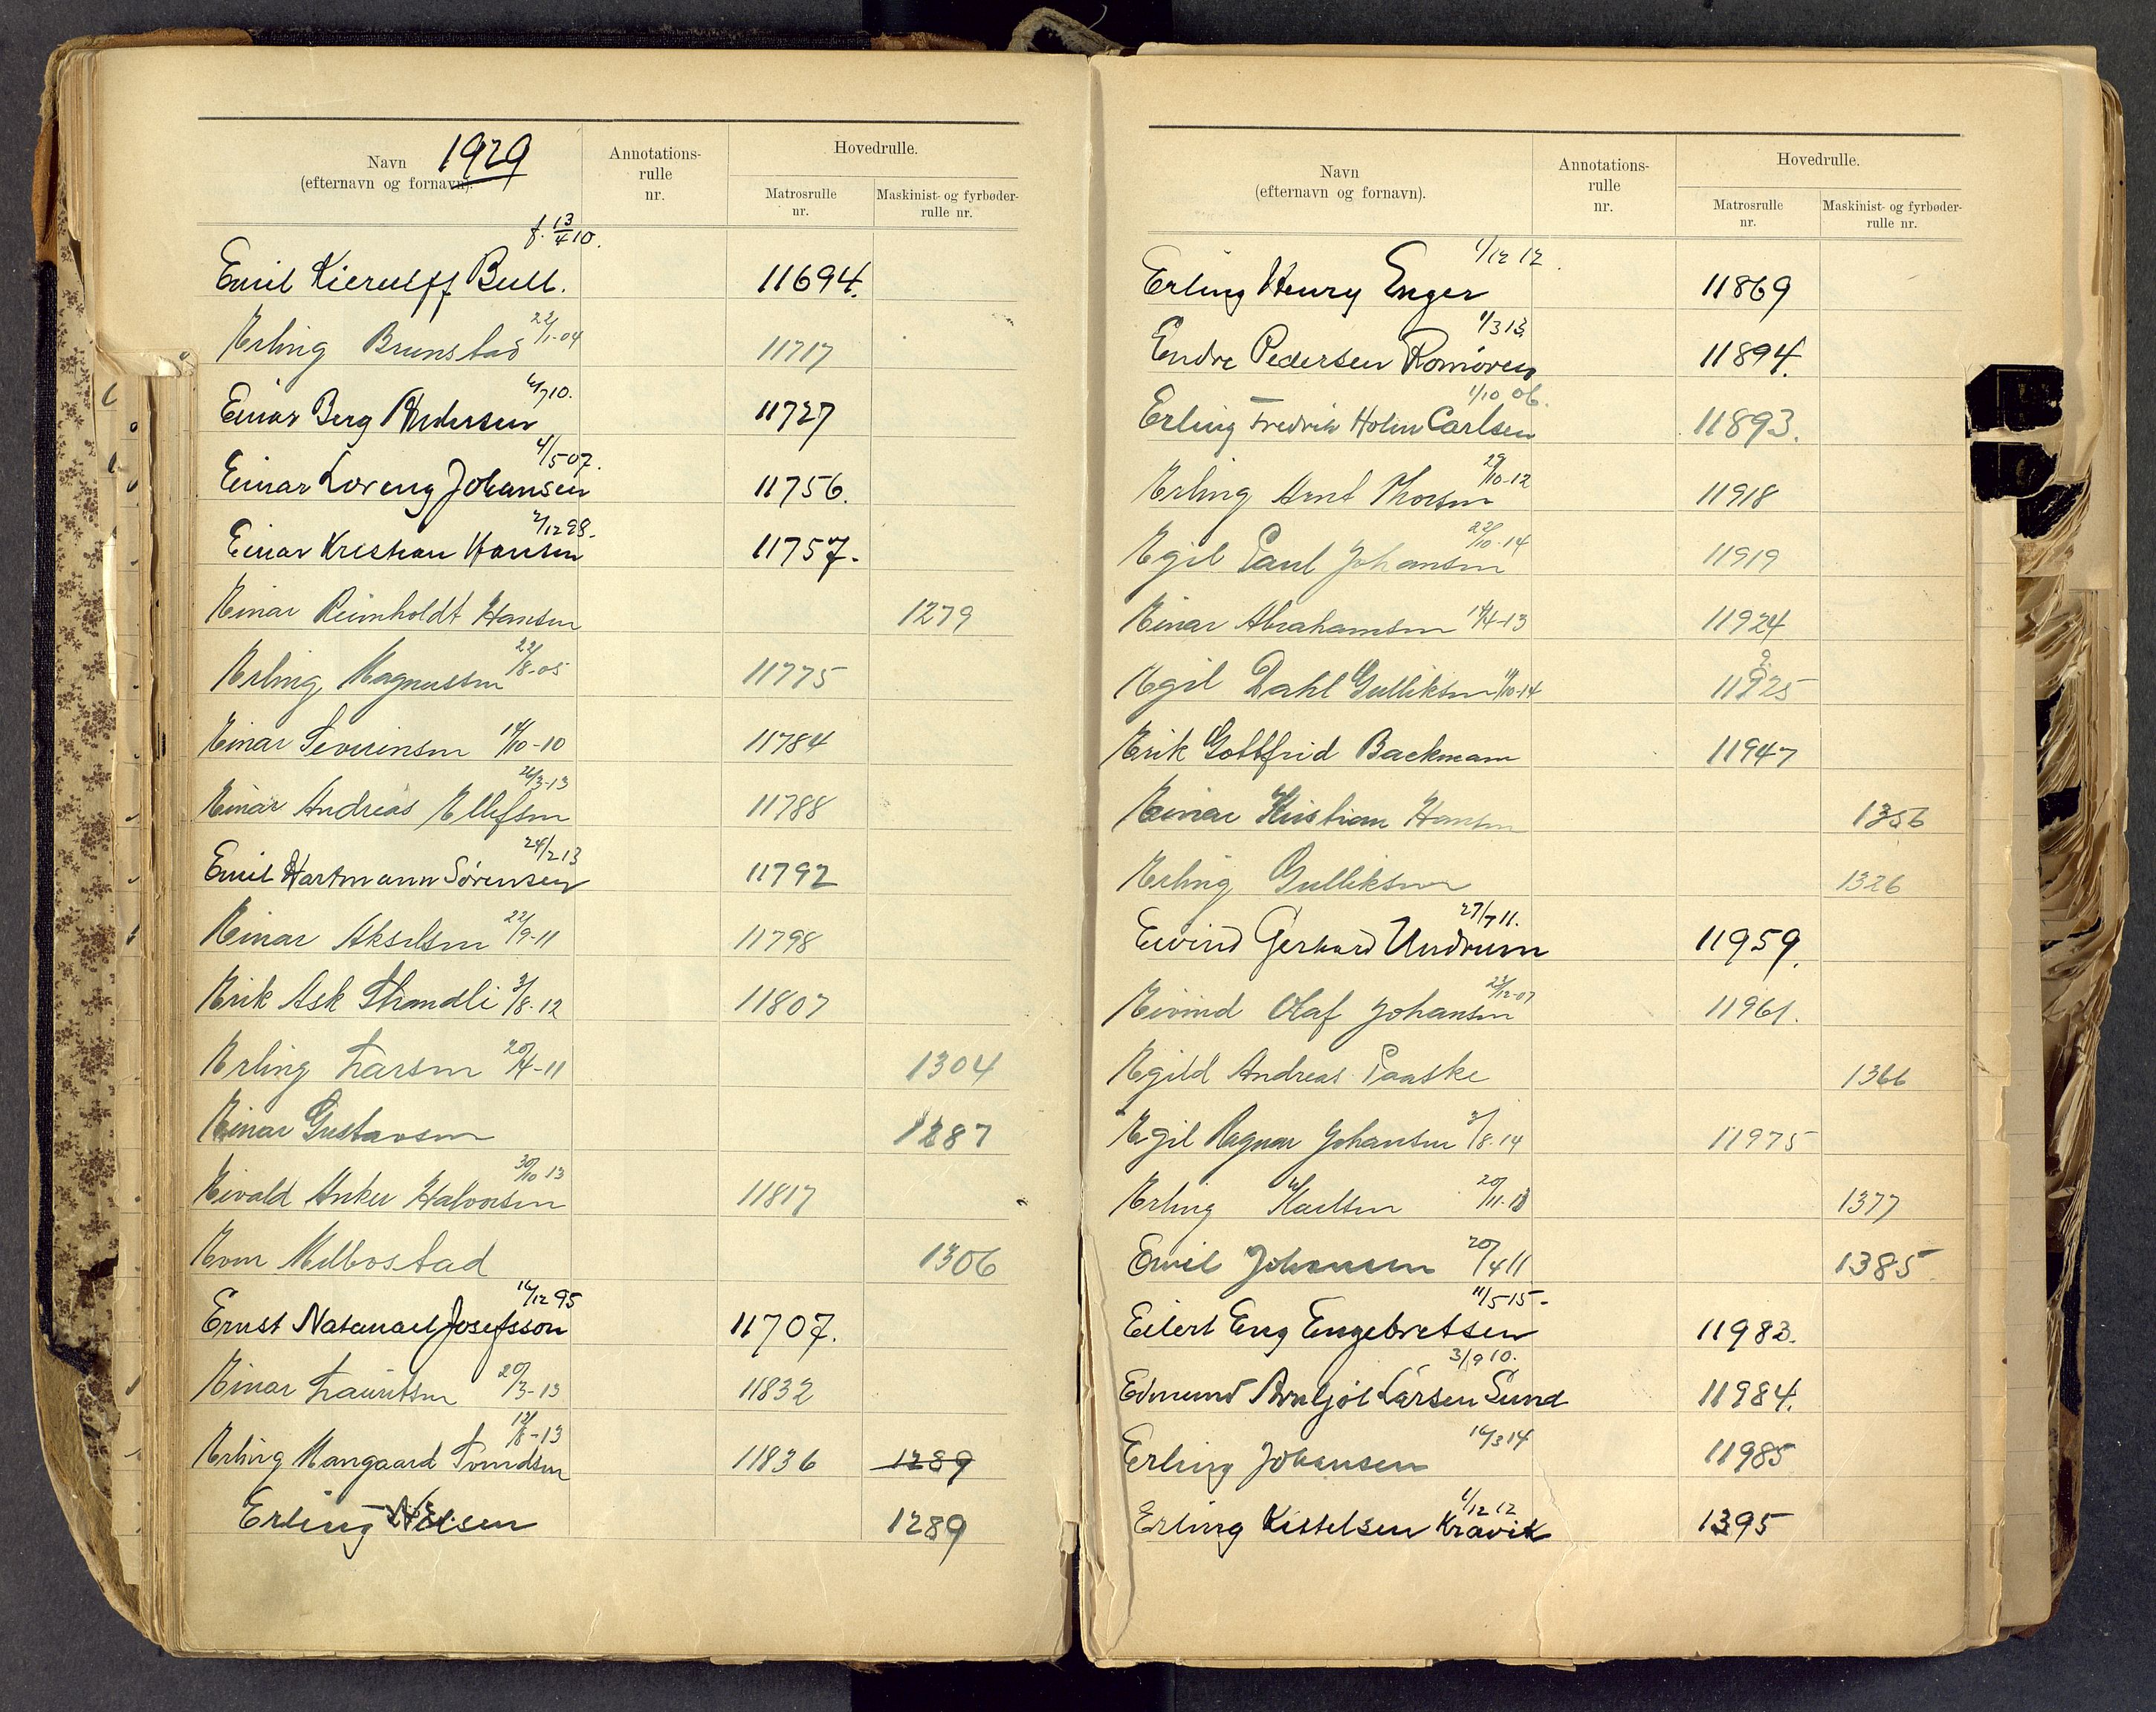 Navn
(efternavn og fornavn).
1929
Annotations-
rulle
nr.
Hovedrulle.
Matrosrulle
nr.
Maskinist- og fyrbøder-
rulle nr.
f. 13/4 10.
Emil Kierulff Bull. 11694.
Erling Brunstad 22/1-04 11717
Einar Berg Andersen 6/7 10. 11727
Einar Loreng Johansen 4/5 07. 11756.
Einar Kristian Hansen 2/12 98. 11757.
Einar Reimholdt Hansen 1279
Erling Magnussen 22/8-05 11775
Einar Severinsen 14/10-10 11784
Einar Andreas Ellefsen 26/3-13 11788
Emil Hartmann Sørensen 24/2 13 11792
Einar Akselsen 22/9-11 11798
Erik Ask Strandli 3/8-12 11807
Erling Larsen 20/4-11 1304
Einar Gustavsen 1287
Eivald Anker Halvorsen 30/10 13 11817
Even Melbostad 1306
Ernst Natanael Josefsson 16/12 95 11707.
Einar Lauritsen 20/3-13 11832
Erling Mangaard 12/8-13 11836 1289
Erling Nilsen 1289
Navn
(efternavn og fornavn).
Annotations-
rulle
nr.
Hovedrulle.
Matrosrulle
nr.
Maskinist- og fyrbøder-
rulle nr.
Erling Henry Enger 1/12 12. 11869
Endre Pedersen Romøren 1/3 13. 11894.
Erling Fredrik Holm Carlsen 1/10 06. 11893.
Erling Arnt Thorsen 29/10-12 11918
Egil Paul Johansen 22/10-14 11919
Einar Abrahamsen 14/4-13 11924
Egil Dahl Gulliksen 11/10-14 11925
Erik Gottfrid Backmann 11947
Einar Kristian Hansen 1356
Erling Gulliksen 1326
Eivind Gerhard Undrum 27/7 11. 11959.
Eivind Olaf Johansen 23/12-07 11961.
Egild Andreas Paaske 1366
Egil Ragnar Johansen 3/8-14 11975
Erling Karlsen 20/11-13 1377
Emil Johansen 20/4 11 1385
Eilert Eng Engebretsen 11/5 15- 11983.
Edmund Arnljot Larsen Sund 3/9 10. 11984.
Erling Johansen 16/3 14 11985
Erling Kittelsen Kravik 1/12 12 1395